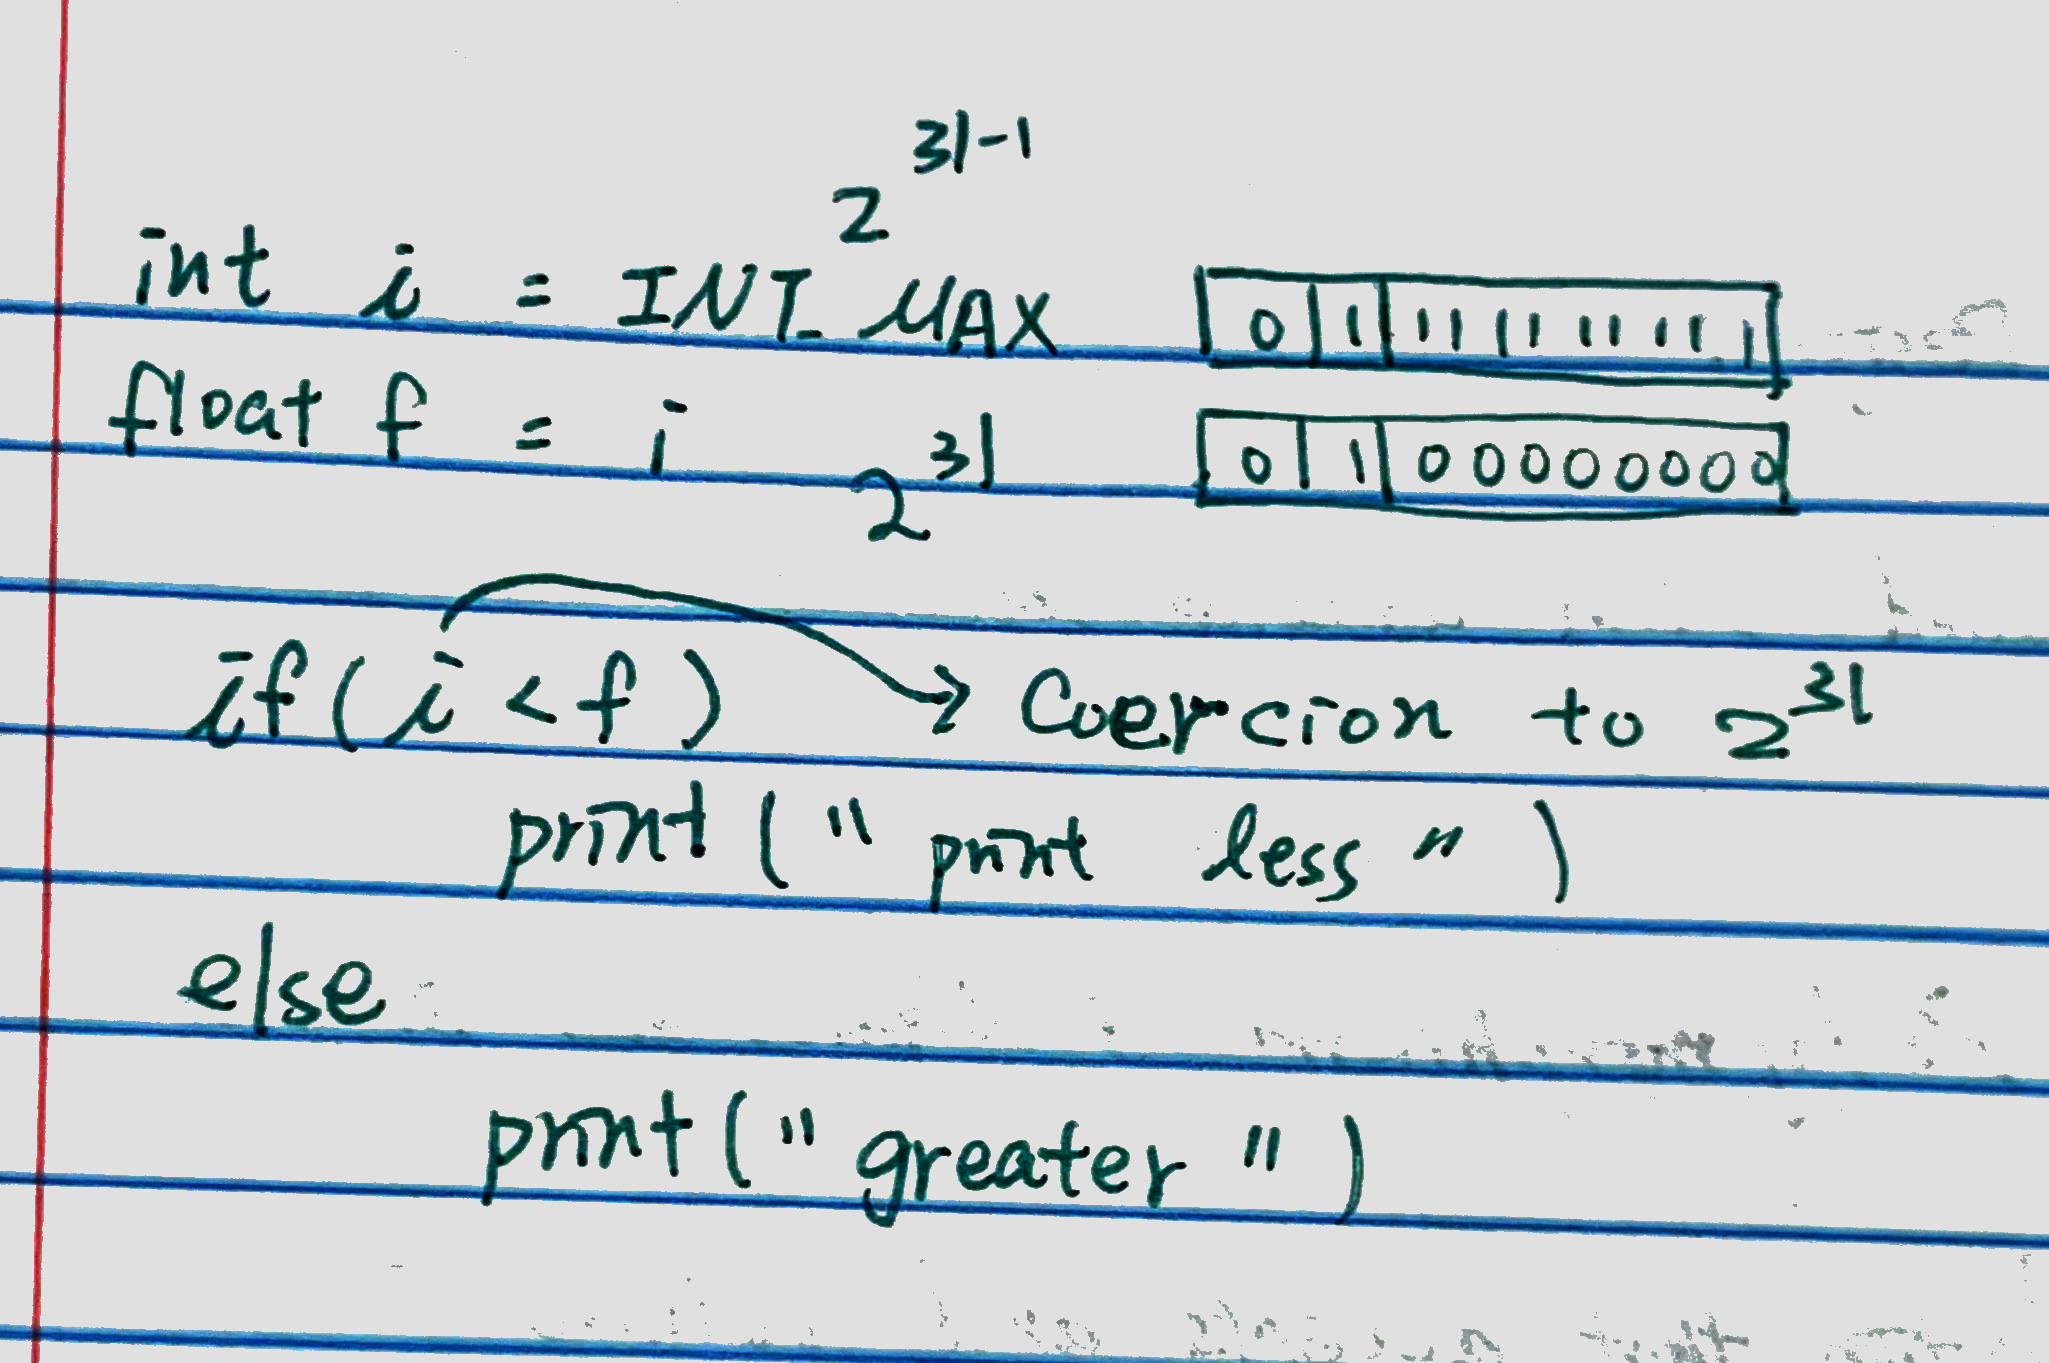 2^31-1
int i = INT_MAX 0 | 1 | 11 11 11 11 1
float f = i 2^31 0 | 1 | 00000000
if(i < f) → Coercion to 2^31
print (" print less ")
else
print (" greater ")